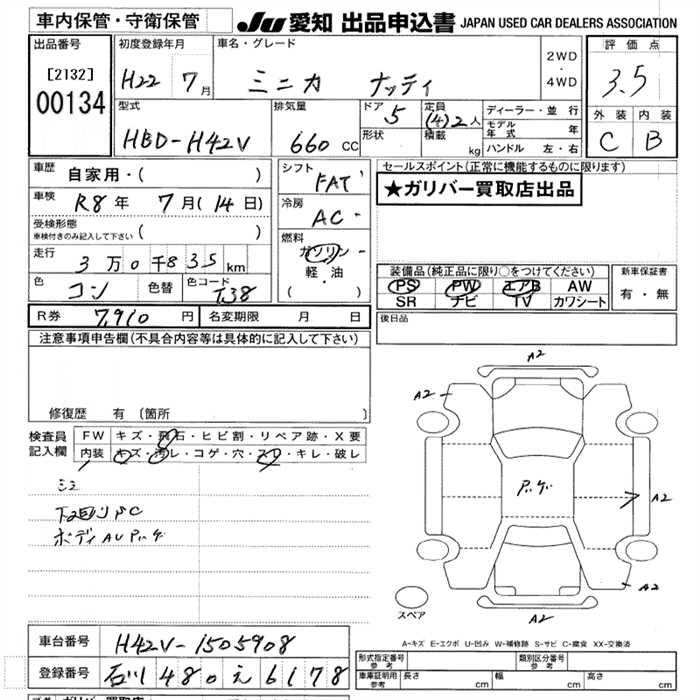 車内保管・守衛保管
JU 愛知 出品申込書 JAPAN USED CAR DEALERS ASSOCIATION
出品番号
[2132]
00134
初度登録年月
H22 7月
車名・グレード
ミニカ ナッティ
2WD
・
4WD
評価点
3.5
型式
HBD-H42V
排気量
660 CC
ドア
5
形状
定員
(4)2人
積載
kg
ディーラー・並行
モデル年式 年
ハンドル 左・右
外装 内装
C B
車歴
自家用・( )
車検
R8年 7月(14日)
受検形態
車検付きのみ記入して下さい ( )
走行
3万0千835km
色
コン 色替 色コード T38
シフト
FAT
冷房
AC
燃料
ガソリン
軽・油
( )
セールスポイント(正常に機能するものに限ります)
★ガリバー買取店出品
装備品(純正品に限り○をつけてください)
PS PW エアB AW
SR ナビ TV カワシート
新車保証書
有・無
R券 7,910円 名変期限 月 日
後日品
注意事項申告欄(不具合内容等は具体的に記入して下さい)
修復歴 有(箇所
検査員記入欄
FW キズ・飛石・ヒビ割・リペア跡・X要
内装 キズ・汚レ・コゲ・穴・スレ・キレ・破レ
ボディAUパケ
A2
A2
パケ
A2
A2
A2
スペア
A-キズ E-エクボ U-凹み W-補修跡 S-サビ C-腐食 XX-交換済
車台番号 H42V-1505908
登録番号 石川 480 え 6178
形式指定番号 参考
類別区分番号 参考
車庫証明用 参考
長さ cm 幅 cm 高さ cm